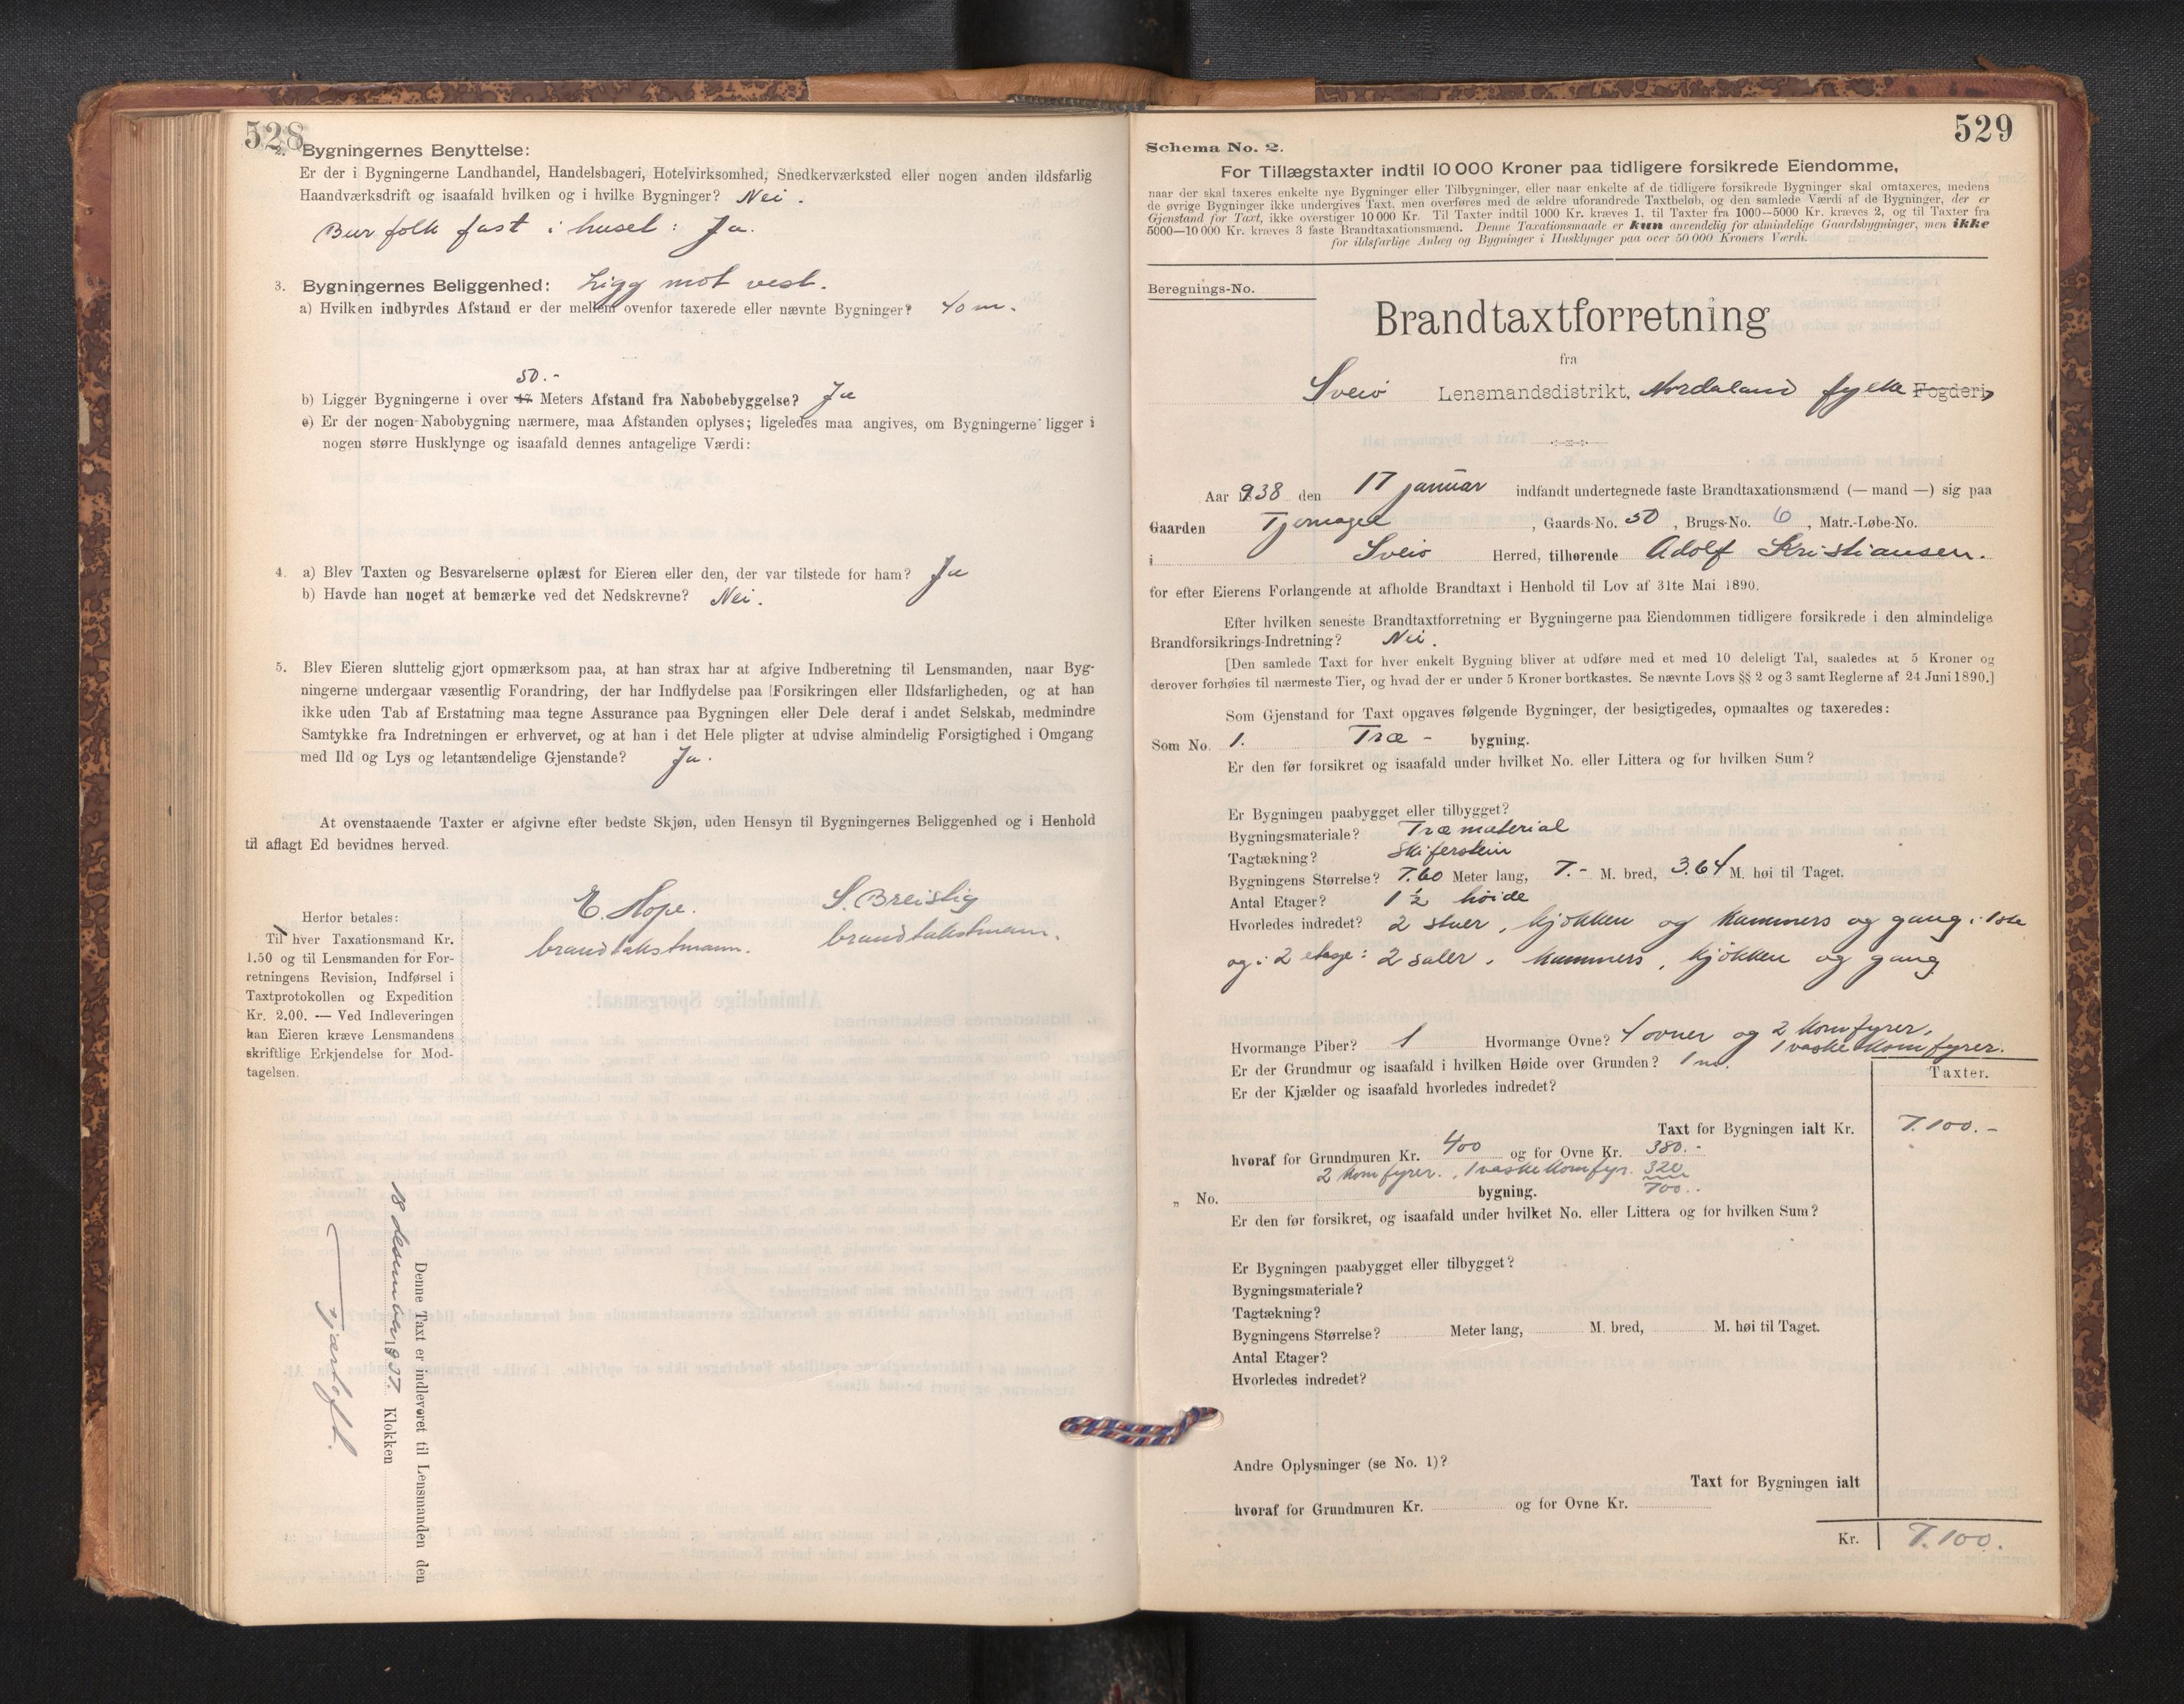 528
2. Bygningernes Benyttelse:
Er der i Bygningerne Landhandel, Handelsbageri, Hotelvirksomhed, Snedkerværksted eller nogen anden ildsfarlig
Haandværksdrift og isaafald hvilken og i hvilke Bygninger? Nei.
Bur folk fast i huset: Ja.
3. Bygningernes Beliggenhed: Ligg mot vest.
a) Hvilken indbyrdes Afstand er der mellem ovenfor taxerede eller nævnte Bygninger? 40 m.
50.-
b) Ligger Bygningerne i over 47 Meters Afstand fra Nabobebyggelse? Ja
c) Er der nogen Nabobygning nærmere, maa Afstanden oplyses; ligeledes maa angives, om Bygningerne ligger i
nogen større Husklynge og isaafald dennes antagelige Værdi:
4. a) Blev Taxten og Besvarelserne oplæst for Eieren eller den, der var tilstede for ham? Ja
b) Havde han noget at bemærke ved det Nedskrevne? Nei.
5. Blev Eieren sluttelig gjort opmærksom paa, at han strax har at afgive Indberetning til Lensmanden, naar Byg-
ningerne undergaar væsentlig Forandring, der har Indflydelse paa Forsikringen eller Ildsfarligheden, og at han
ikke uden Tab af Erstatning maa tegne Assurance paa Bygningen eller Dele deraf i andet Selskab, medmindre
Samtykke fra Indretningen er erhvervet, og at han i det Hele pligter at udvise almindelig Forsigtighed i Omgang
med Ild og Lys og letantændelige Gjenstande? Ja.
At ovenstaaende Taxter er afgivne efter bedste Skjøn, uden Hensyn til Bygningernes Beliggenhed og i Henhold
til aflagt Ed bevidnes herved.
E. Hope. S. Breistig
brandtakstmann. brandtakstmann.
Herfor betales:
Til hver Taxationsmand Kr.
1.50 og til Lensmanden for For-
retningens Revision, Indførsel i
Taxtprotokollen og Expedition
Kr. 2.00. — Ved Indleveringen
kan Eieren kræve Lensmandens
skriftlige Erkjendelse for Mod-
tagelsen.
Denne Taxt er indleveret til Lensmanden den
18 desember 1937. Klokken
529
Schema No. 2.
For Tillægstaxter indtil 10 000 Kroner paa tidligere forsikrede Eiendomme,
naar der skal taxeres enkelte nye Bygninger eller Tilbygninger, eller naar enkelte af de tidligere forsikrede Bygninger skal omtaxeres, medens
de øvrige Bygninger ikke undergives Taxt, men overføres med de ældre uforandrede Taxtbeløb, og den samlede Værdi af de Bygninger, der er
Gjenstand for Taxt, ikke overstiger 10 000 Kr. Til Taxter indtil 1000 Kr. kræves 1, til Taxter fra 1000—5000 Kr. kræves 2, og til Taxter fra
5000—10 000 Kr. kræves 3 faste Brandtaxationsmænd. Denne Taxationsmaade er kun anvendelig for almindelige Gaardsbygninger, men ikke
for ildsfarlige Anlæg og Bygninger i Husklynger paa over 50 000 Kroners Værdi.
Beregnings-No.
Brandtaxtforretning
fra
Sveio Lensmandsdistrikt, Hordaland fylke Fogderi,
Aar 1938 den 17 januar indfandt undertegnede faste Brandtaxationsmænd (— mand —) sig paa
Gaarden Tjernagel, Gaards-No. 50, Brugs-No. 6, Matr.-Løbe-No.
i Sveio Herred, tilhørende Adolf Kristiansen.
for efter Eierens Forlangende at afholde Brandtaxt i Henhold til Lov af 31te Mai 1890.
Efter hvilken seneste Brandtaxtforretning er Bygningerne paa Eiendommen tidligere forsikrede i den almindelige
Brandforsikrings-Indretning? Nei.
[Den samlede Taxt for hver enkelt Bygning bliver at udføre med et med 10 deleligt Tal, saaledes at 5 Kroner og
derover forhøies til nærmeste Tier, og hvad der er under 5 Kroner bortkastes. Se nævnte Lovs §§ 2 og 3 samt Reglerne af 24 Juni 1890.]
Som Gjenstand for Taxt opgaves følgende Bygninger, der besigtigedes, opmaaltes og taxeredes:
Som No. 1. Træ - bygning.
Er den før forsikret og isaafald under hvilket No. eller Littera og for hvilken Sum?
Er Bygningen paabygget eller tilbygget?
Bygningsmateriale? Træmaterial
Tagtækning? Skiferstein
Bygningens Størrelse? 7.60 Meter lang, 7.- M. bred, 3.64 M. høi til Taget.
Antal Etager? 1 ½ høide
Hvorledes indredet? 2 stuer, kjøkken og kammers og gang i 1ste
og i 2 etage: 2 saler, kammers, kjøkken og gang
Hvormange Piber? 1 Hvormange Ovne? 4 ovner og 2 komfyrer,
1 vaskekomfyrer.
Er der Grundmur og isaafald i hvilken Høide over Grunden? 1 m.
Er der Kjælder og isaafald hvorledes indredet?
Taxter.
Taxt for Bygningen ialt Kr. 7.100.-
hvoraf for Grundmuren Kr. 400 og for Ovne Kr. 380.-
2 komfyrer., 1 vaskekomfyr. 320
700.-
„ No. bygning.
Er den før forsikret, og isaafald under hvilket No. eller Littera og for hvilken Sum?
Er Bygningen paabygget eller tilbygget?
Bygningsmateriale?
Tagtækning?
Bygningens Størrelse? Meter lang, M. bred, M. høi til Taget.
Antal Etager?
Hvorledes indredet?
Andre Oplysninger (se No. 1)?
Taxt for Bygningen ialt
hvoraf for Grundmuren Kr. og for Ovne Kr.
Kr. 7.100.